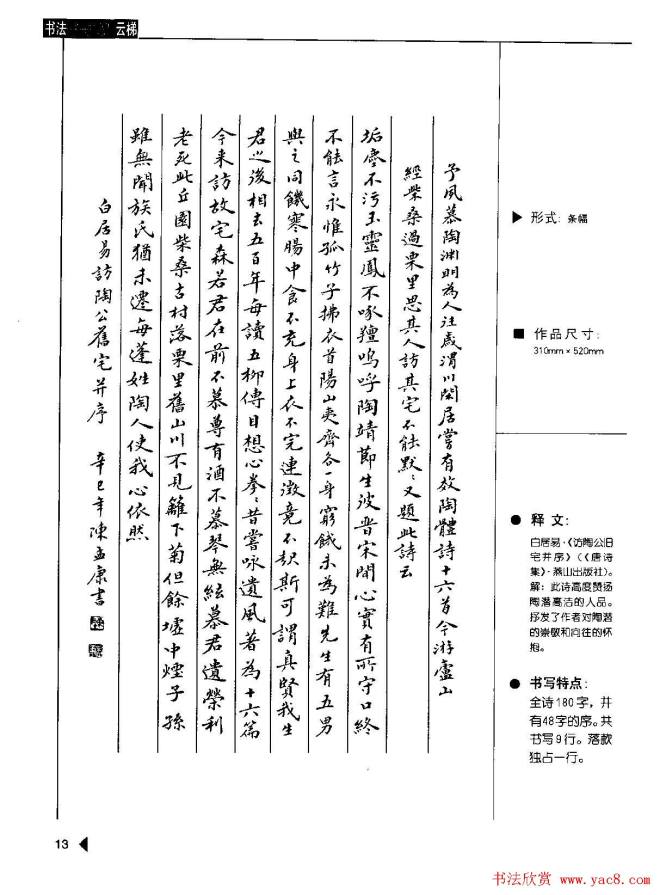 书法 云梯
予夙慕陶渊明為人往歲渭川閑居嘗有效陶體詩十六首今游廬山
經柴桑過栗里思其人訪其宅不能默默又題此詩云
垢塵不污玉靈鳳不啄羶嗚呼陶靖節生彼晋宋間心實有所守口終
不能言永惟孤竹子拂衣首陽山夷齊各一身窮餓未為難先生有五男
與之同饑寒腸中食不充身上衣不完連徵竟不起斯可謂真賢我生
君之後相去五百年每讀五柳傳目想心拳拳昔嘗咏遺風著為十六篇
今来訪故宅森若君在前不慕尊有酒不慕琴無絃慕君遺榮利
老死此丘園柴桑古村落栗里舊山川不見籬下菊但餘墟中煙子孫
雖無聞族氏猶未遷每逢姓陶人使我心依然
白居易訪陶公舊宅并序 辛巳年陳孟康書
▶ 形式: 条幅
■ 作品尺寸:
310mm × 520mm
● 释文:
白居易·《访陶公旧
宅并序》(《唐诗
集》·燕山出版社)。
解: 此诗高度赞扬
陶潜高洁的人品。
抒发了作者对陶潜
的崇敬和向往的怀
抱。
● 书写特点:
全诗180字, 并
有48字的序。共
书写9行。落款
独占一行。
13 ◀
书法欣赏 www.yac8.com